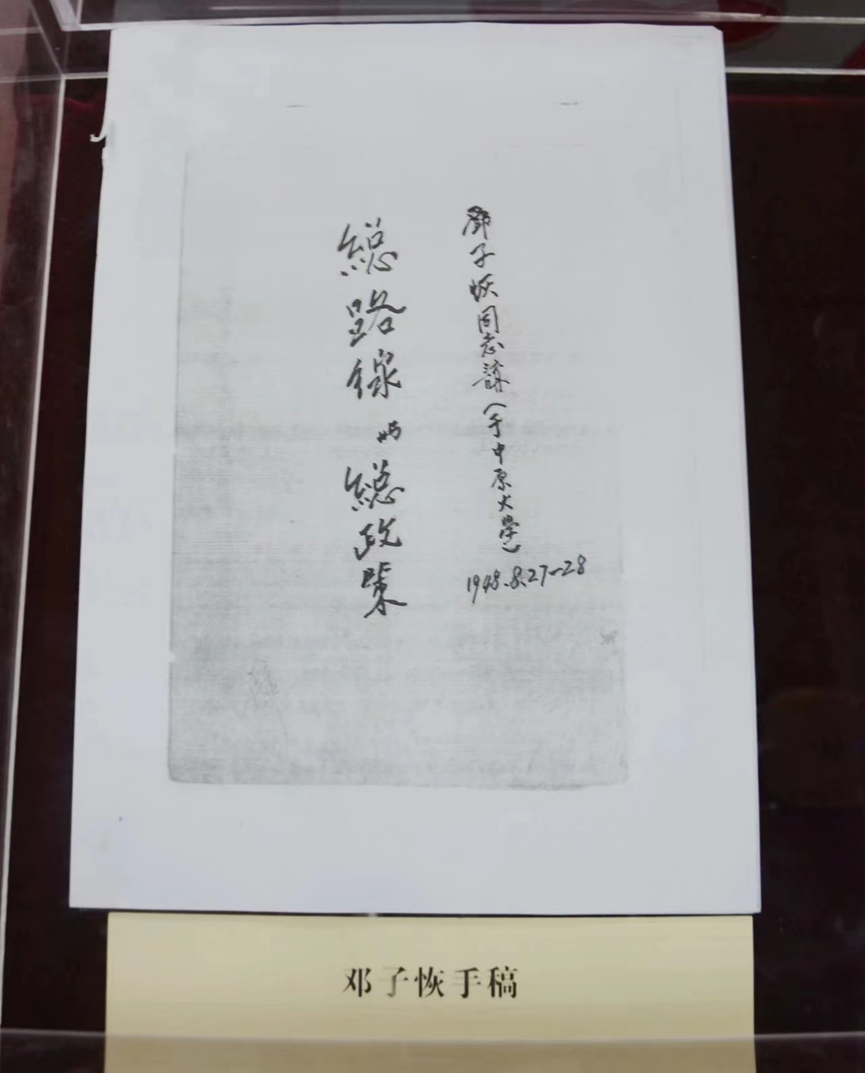 鄧子恢同志講（于中原大學）
1948.8.27—28
総路線与総政策
邓子恢手稿